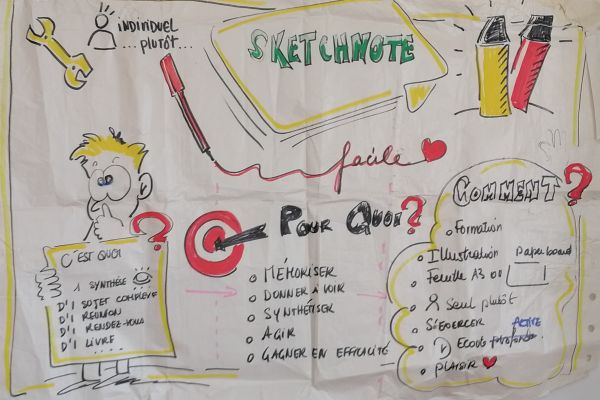 individuel
...plutôt...
SKETCHNOTE
facile
C'EST QUOI ?
1 SYNTHÈSE
D'1 SUJET COMPLEXE
D'1 RÉUNION
D'1 RENDEZ-VOUS
D'1 LIVRE
....
POUR QUOI?
MÉMORISER
DONNER À VOIR
SYNTHÉTISER
AGIR
GAGNER EN EFFICACITÉ
COMMENT?
Formation
Illustration
Feuille A3 ou Paperboard
Seul plutôt
S'EXERCER
Ecoute ACTIVE
PLAISIR